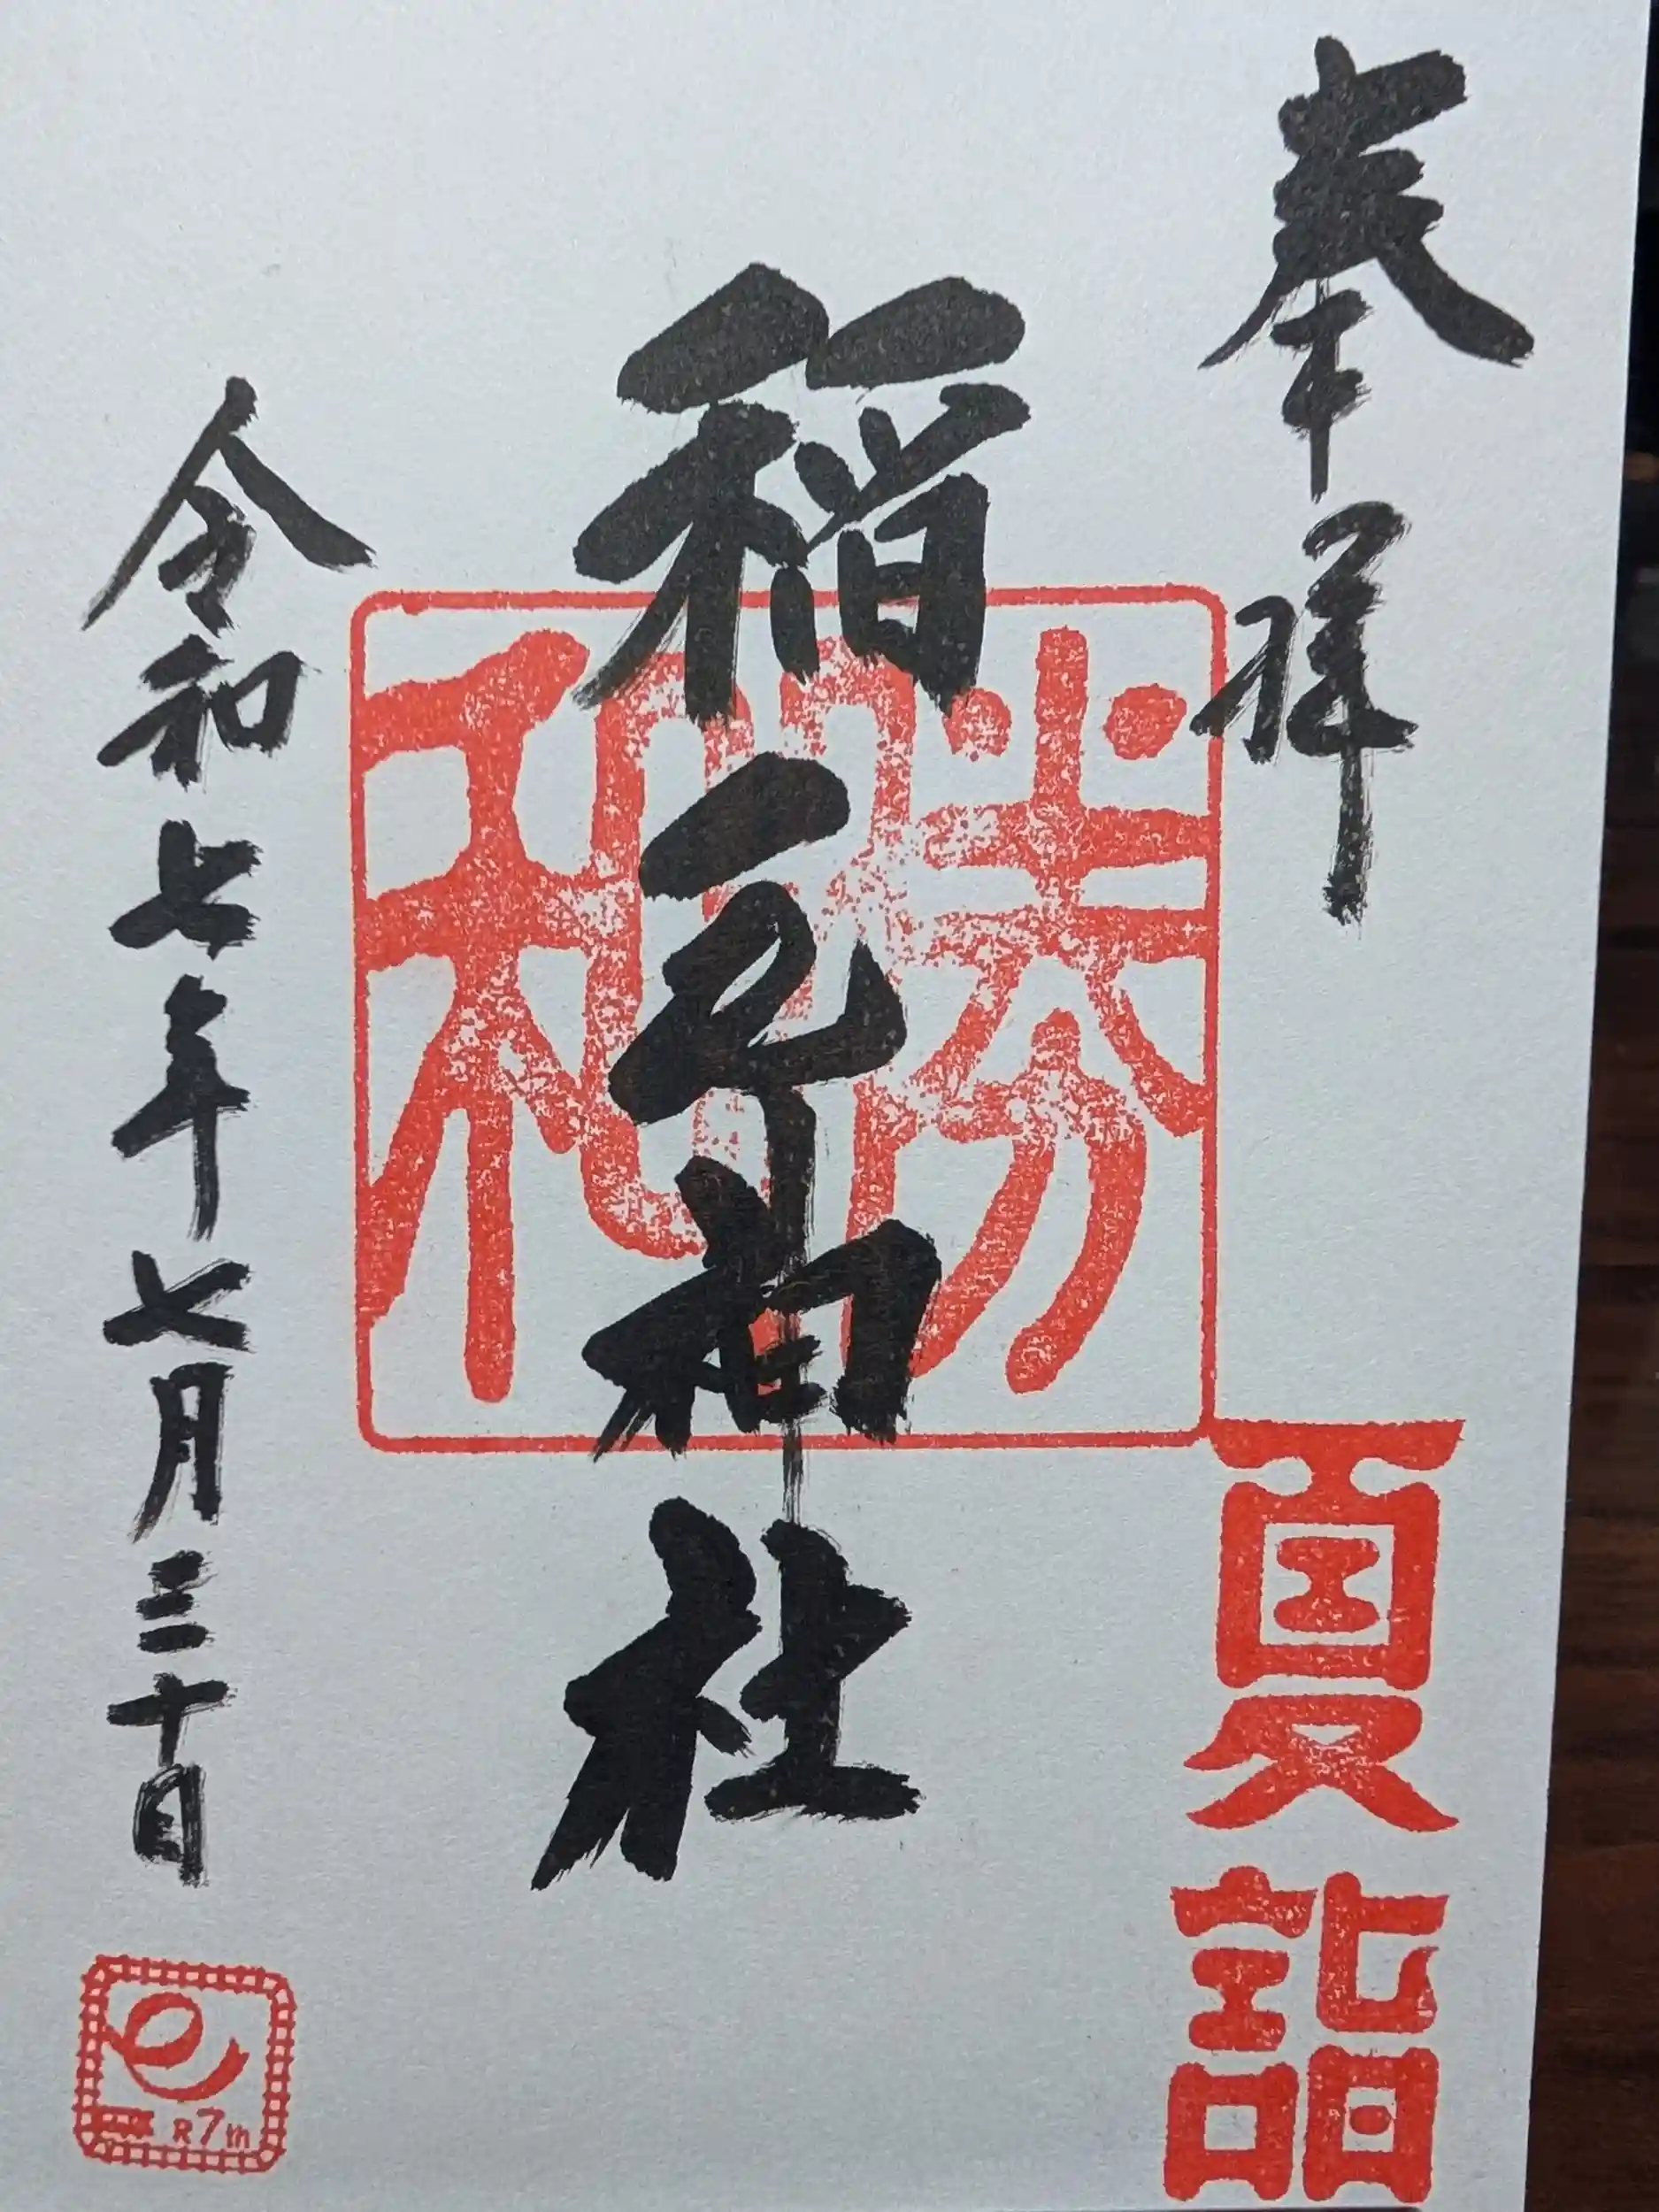 奉拝
夏詣
稲毛神社
令和七年七月三十日
R7